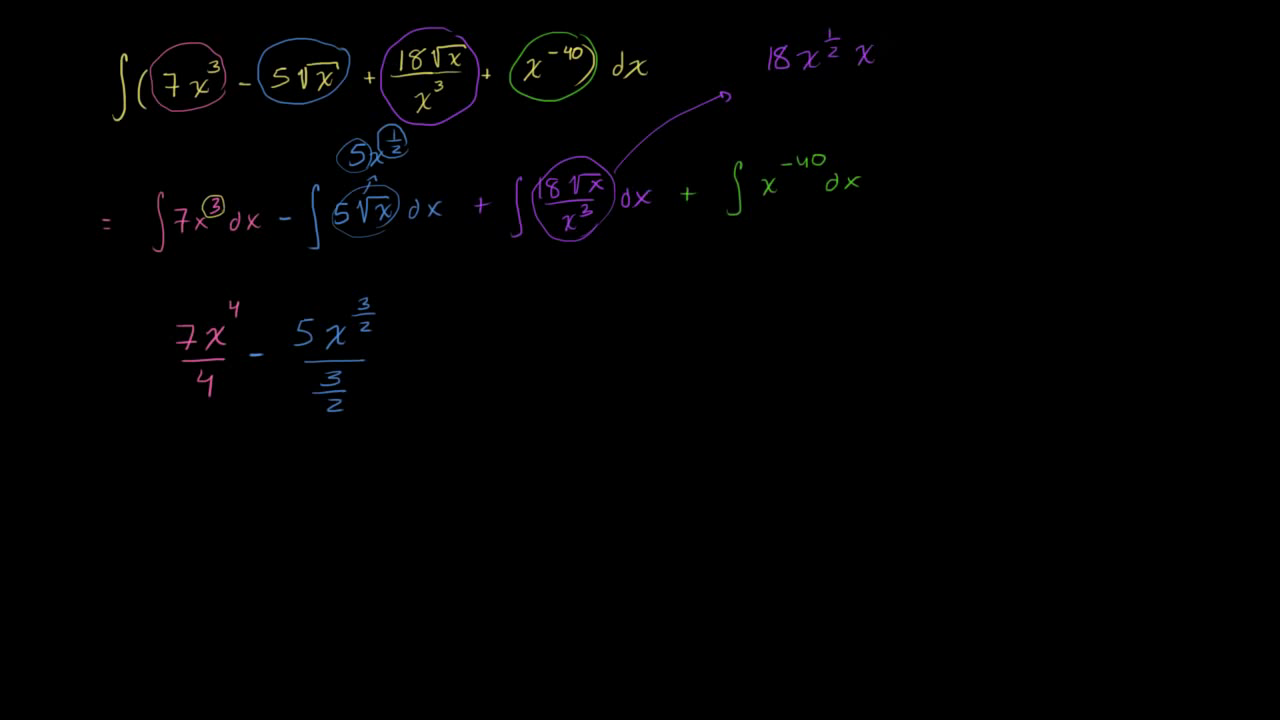 ∫(7x³ - 5√x + 18√x/x³ + x⁻⁴⁰) dx
18x^½ x
5x^½
= ∫7x³ dx - ∫5√x dx + ∫18√x/x³ dx + ∫x⁻⁴⁰ dx
7x⁴/4 - 5x^(3/2)/(3/2)